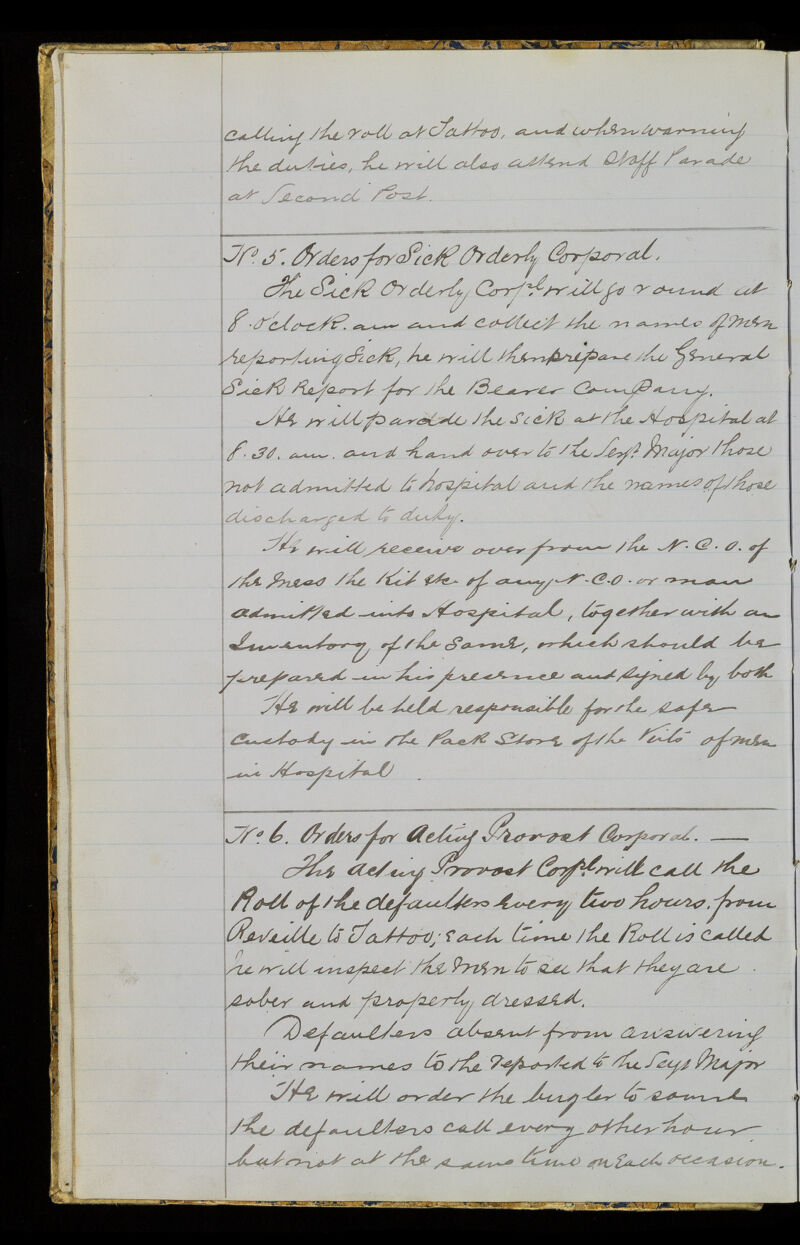 calling the roll at Tattoo, and when warning
the duties, he will also attend Staff Parade
at Second Post.
No. 5. Orders for Sick Orderly Corporal.
The Sick Orderly Corpl. will go round at
8 o'clock. am and collect the names of men
reporting Sick, he will then prepare the General
Sick Report for the Bearer Company.
He will paradde the sick at the Hospital at
8.30. am. and hand over to the Sergt. Major those
not admitted to hospital and the names of those
discharged to duty.
He will receive over from the N.C.O. of
the Mess the Kit etc of any N.C.O. or man
admitted into Hospital, together with an
Inventory of the Same, which should be
prepared in his presence and signed by both
He will be held responsible for the safe
custody in the Pack Store of the Kits of men
in Hospital.
No. 6. Orders for Acting Provost Corporal. —
The Acting Provost Corpl. will call the
Roll of the defaulters every two hours. from
Reveille to Tattoo; each time the Roll is called
he will inspect the men to see that they are
sober and properly dressed.
Defaulters absent from answering
their names to the reported to the Sergt Major
He will order the bugler to sound
the defaulters call every other hour
but not at the same time on Each occasion.